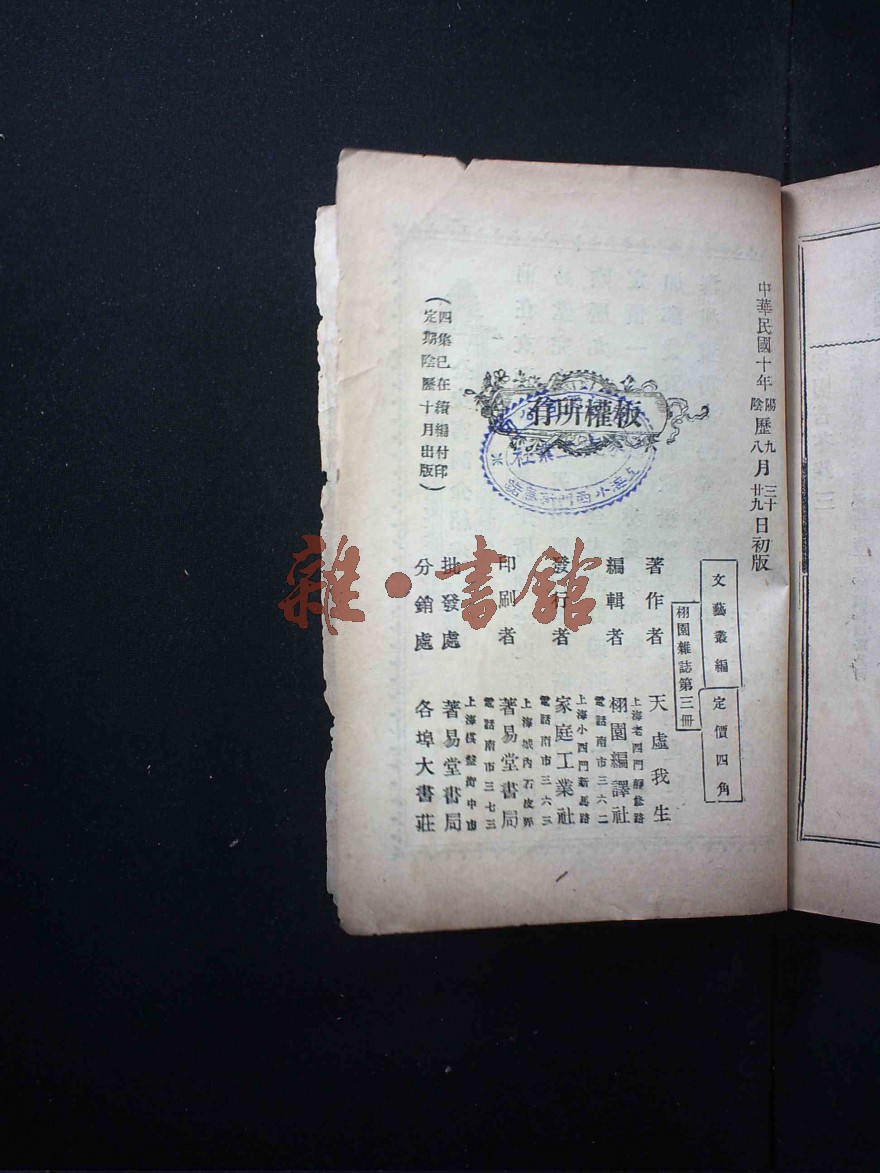 中華民國十年陽歷九月三十日初版
陰歷八月廿九日初版
文藝叢編
定價四角
栩園雜誌第三冊
著作者 天虛我生
上海老西門靜修路
編輯者 栩園編譯社
電話南市三六二
上海小西門新馬路
發行者 家庭工業社
電話南市三六三
上海城內石皮弄
印刷者 著易堂書局
電話南市三七三
上海棋盤街中市
批發處 著易堂書局
分銷處 各埠大書莊
版權所有
(四集已在續編付印
定期陰歷十月出版)
雜·書館